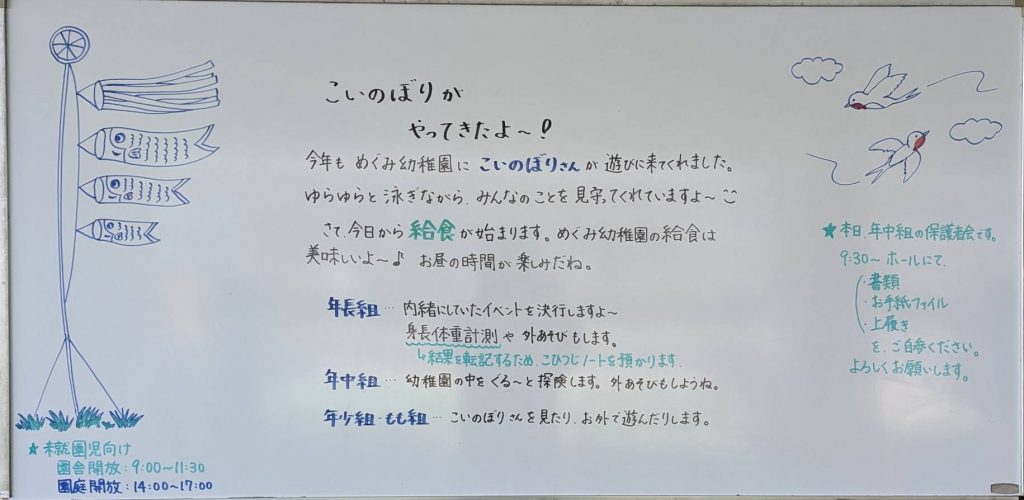 こいのぼりが
やってきたよ～！
今年も めぐみ幼稚園に こいのぼりさんが 遊びに来てくれました。
ゆらゆらと 泳ぎながら、みんなのことを 見守ってくれていますよ～
さて、今日から 給食が始まります。めぐみ幼稚園の給食は
美味しいよ～♪ お昼の時間が楽しみだね。
年長組…内緒にしていたイベントを決行しますよ～
身長体重計測や 外あそびもします。
↳結果を転記するため、こひつじノートを預かります
年中組…幼稚園の中をぐる～と探険します。外あそびもしようね。
年少組・もも組…こいのぼりさんを見たり、お外で遊んだりします。
★未就園児向け
園舎開放：9:00～11:30
園庭開放：14:00～17:00
★本日、年中組の保護者会です。
9:30～ ホールにて、
・書類
・お手紙ファイル
・上履き
を、ご自参ください。
よろしくお願いします。